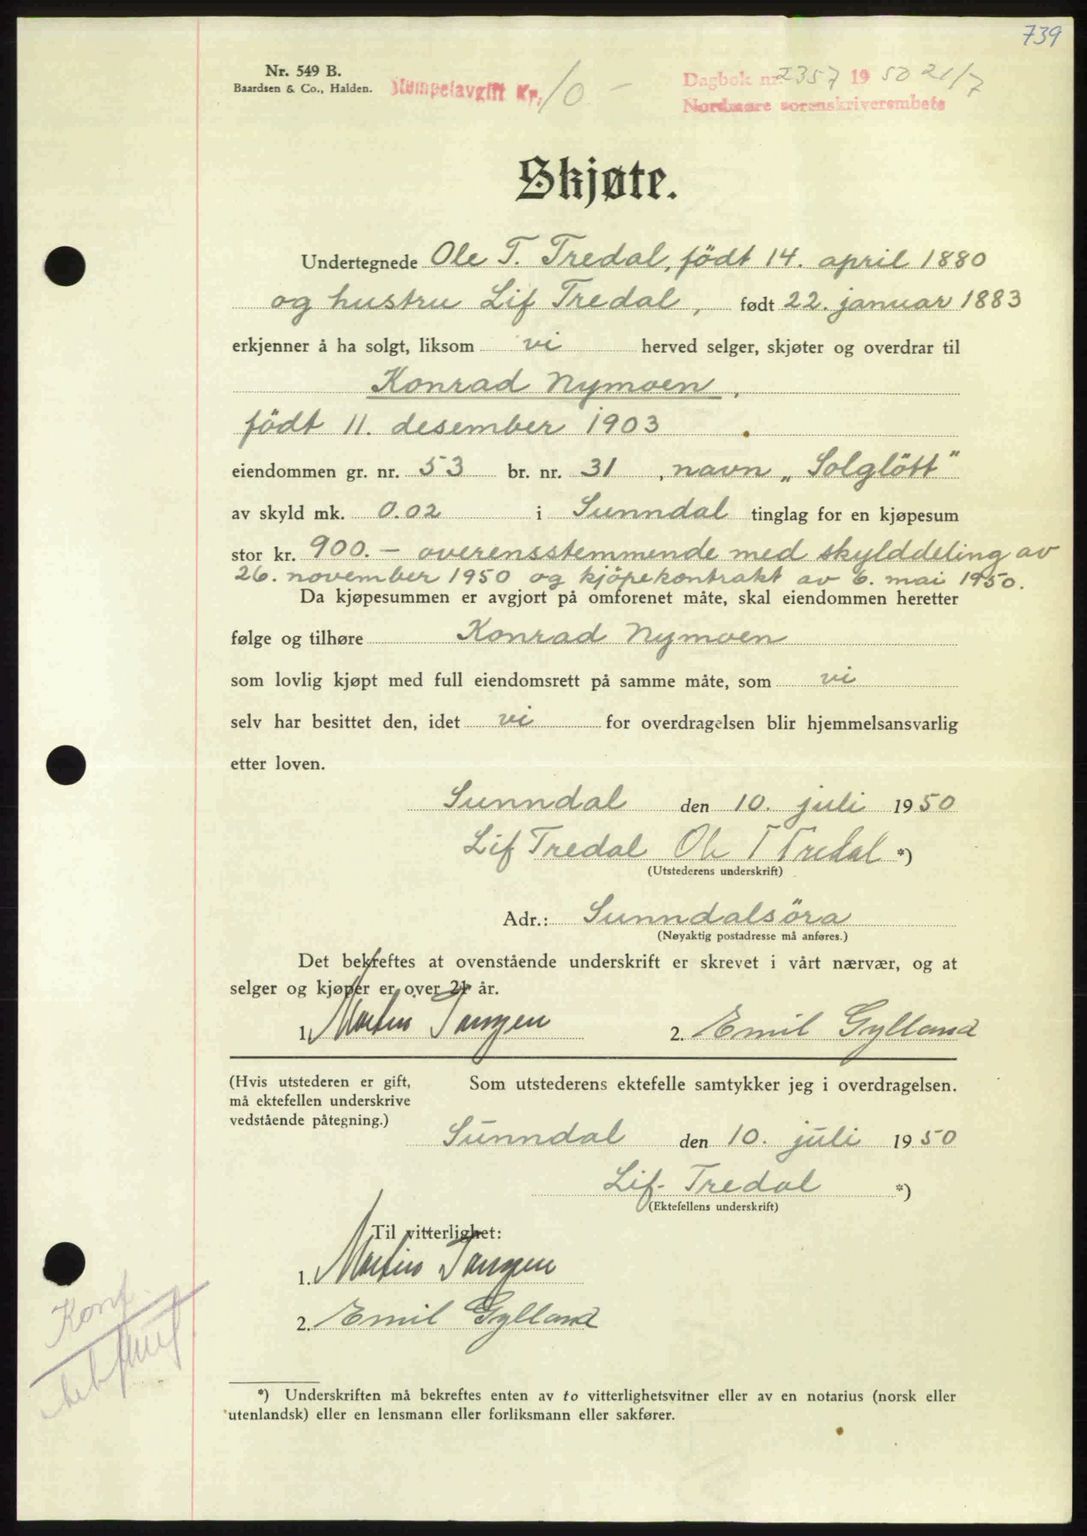 739
Nr. 549 B.
Baardsen & Co., Halden.
Stempelavgift Kr. 10 -
Dagbok nr. 2357 1950 21/7
Nordmøre sorenskriverembete
Skjøte.
Undertegnede Ole T. Tredal, födt 14. april 1880
og hustru Lif Tredal, født 22. januar 1883
erkjenner å ha solgt, liksom vi herved selger, skjøter og overdrar til
Konrad Nymoen,
födt 11. desember 1903
eiendommen gr. nr. 53 br. nr. 31, navn „Solglött"
av skyld mk. 0.02 i Sunndal tinglag for en kjøpesum
stor kr. 900.- overensstemmende med skylddeling av
26. november 1950 og kjöpekontrakt av 6. mai 1950.
Da kjøpesummen er avgjort på omforenet måte, skal eiendommen heretter
følge og tilhøre Konrad Nymoen
som lovlig kjøpt med full eiendomsrett på samme måte, som vi
selv har besittet den, idet vi for overdragelsen blir hjemmelsansvarlig
etter loven.
Sunndal den 10. juli 1950
Lif Tredal Ole T Tredal *)
(Utstederens underskrift)
Adr.: Sunndalsöra
(Nøyaktig postadresse må anføres.)
Det bekreftes at ovenstående underskrift er skrevet i vårt nærvær, og at
selger og kjøper er over 21 år.
1. Martin Tangen 2. Emil Gylland
(Hvis utstederen er gift, Som utstederens ektefelle samtykker jeg i overdragelsen.
må ektefellen underskrive
vedstående påtegning.)
Sunndal den 10. juli 1950
Lif Tredal *)
(Ektefellens underskrift)
Til vitterlighet:
1. Martin Tangen
2. Emil Gylland
Konf.
*) Underskriften må bekreftes enten av to vitterlighetsvitner eller av en notarius (norsk eller
utenlandsk) eller en lensmann eller forliksmann eller sakfører.